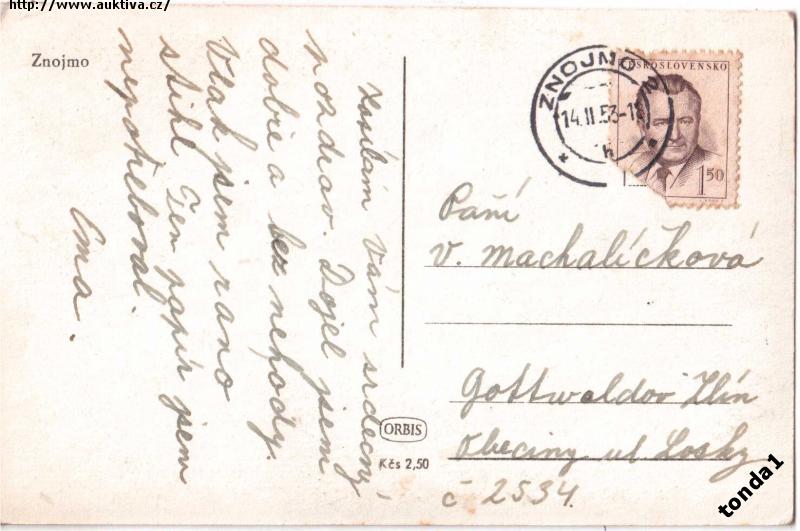 http://www.auktiva.cz/
Znojmo
Zasílám Vám srdečný
pozdrav. Dojel jsem
dobře a bez nehody.
Vlak jsem rano
stihl Ten papír jsem
nepotřeboval.
Ema.
ORBIS
Kčs 2,50
ZNOJMO 2
14.II.53-1
h
ČESKOSLOVENSKO
1 50
Paňí
V. Machalíčková
Gottwaldov Zlín
Obeciny ul Losky
č 2534.
tonda1